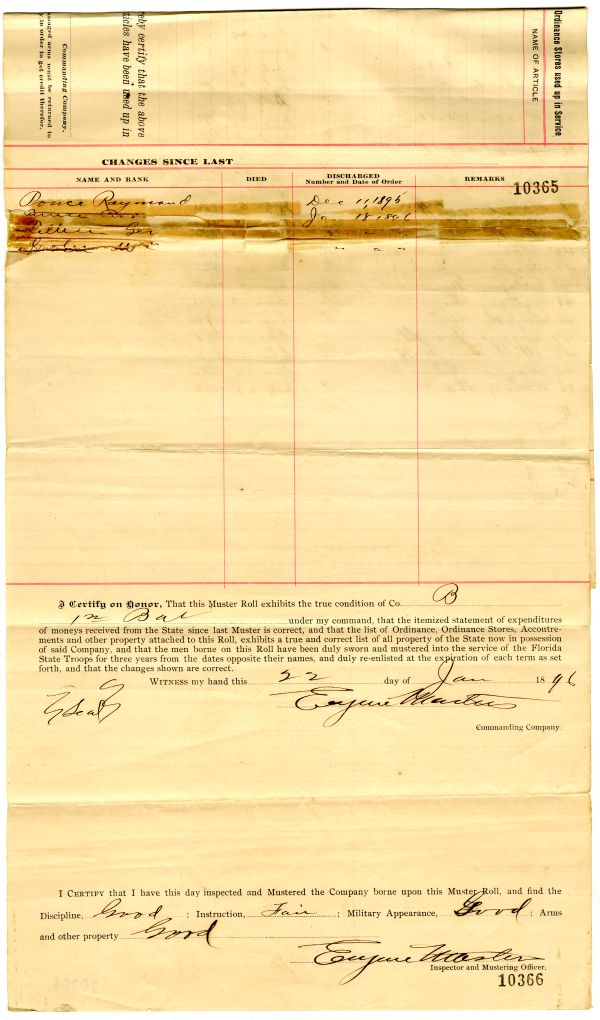 Ordinance Stores used up in Service
NAME OF ARTICLE
reby certify that the above
ticles have been used up in
Commanding Company.
maged arms must be returned to
y in order to get credit therefor.
CHANGES SINCE LAST
NAME AND RANK DIED DISCHARGED Number and Date of Order REMARKS
10365
Ponce Raymond Dec 11, 1895
Jan 18 1896
" " "
I Certify on Honor, That this Muster Roll exhibits the true condition of Co. B
1st Bat under my command, that the itemized statement of expenditures
of moneys received from the State since last Muster is correct, and that the list of Ordinance, Ordinance Stores, Accoutre-
ments and other property attached to this Roll, exhibits a true and correct list of all property of the State now in possession
of said Company, and that the men borne on this Roll have been duly sworn and mustered into the service of the Florida
State Troops for three years from the dates opposite their names, and duly re-enlisted at the expiration of each term as set
forth, and that the changes shown are correct.
WITNESS my hand this 22 day of Jan 1896
Seal
Eugene Masters
Commanding Company.
I CERTIFY that I have this day inspected and Mustered the Company borne upon this Muster Roll, and find the
Discipline, Good ; Instruction, Fair ; Military Appearance, Good ; Arms
and other property Good
Eugene Masters
Inspector and Mustering Officer.
10366